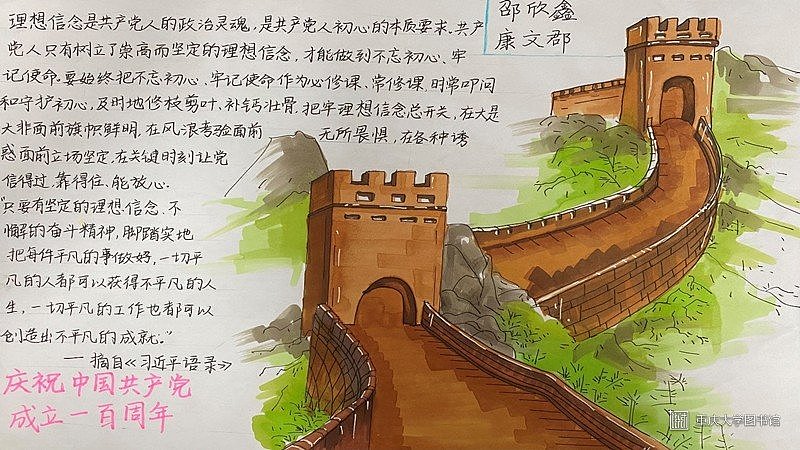 理想信念是共产党人的政治灵魂，是共产党人初心的本质要求.共产
党人只有树立了崇高而坚定的理想信念，才能做到不忘初心、牢
记使命.要始终把不忘初心、牢记使命作为必修课、常修课.时常叩问
和守护初心，及时地修枝剪叶、补钙壮骨.把牢理想信念总开关，在大是
大非面前旗帜鲜明，在风浪考验面前 无所畏惧，在各种诱
惑面前立场坚定，在关键时刻让党
信得过，靠得住、能放心.
“只要有坚定的理想信念、不
懈的奋斗精神，脚踏实地
把每件平凡的事做好，一切平
凡的人都可以获得不平凡的人
生，一切平凡的工作也都可以
创造出不平凡的成就.”
——摘自《习近平语录》
庆祝中国共产党
成立一百周年
邵欣鑫
康文郡
重庆大学图书馆